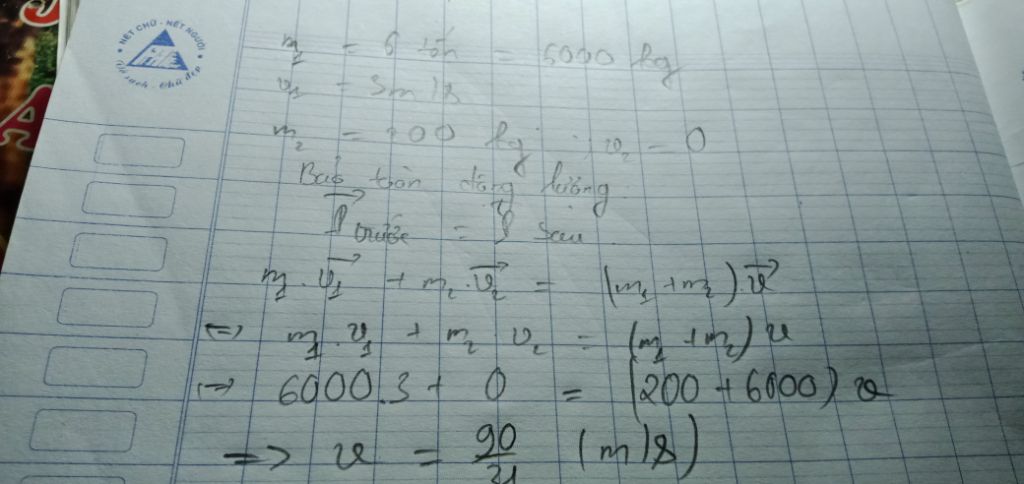 NÉT CHỮ - NẾT NGƯỜI
Vở sạch - chữ đẹp
m₁ = 6 tấn = 6000 kg
v₁ = 3m/s
m₂ = 200 kg ; v₂ = 0
Bảo toàn động lượng
P trước = P sau
m₁.v₁ + m₂.v₂ = (m₁ + m₂).v
=> m₁.v₁ + m₂ v₂ = (m₁ + m₂) v
=> 6000.3 + 0 = (200 + 6000) v
=> v = 90/31 (m/s)